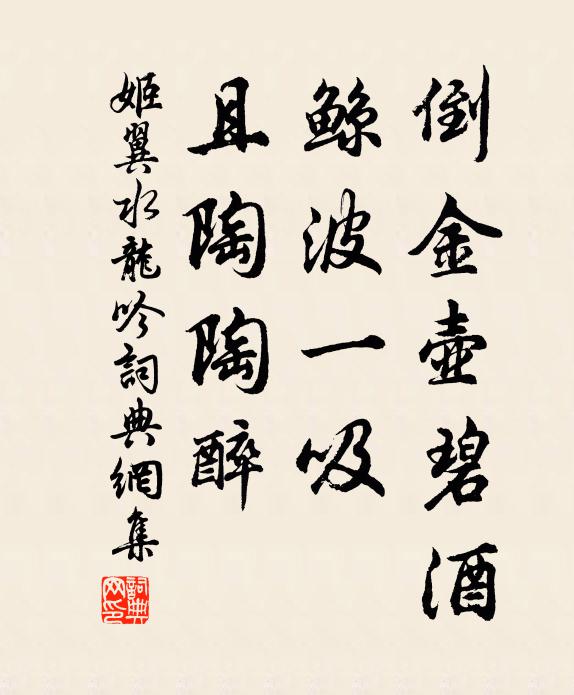 倒金壺碧酒
鲸波一吸
且陶陶醉
姬翼水龍吟詞典網集
詞典网印